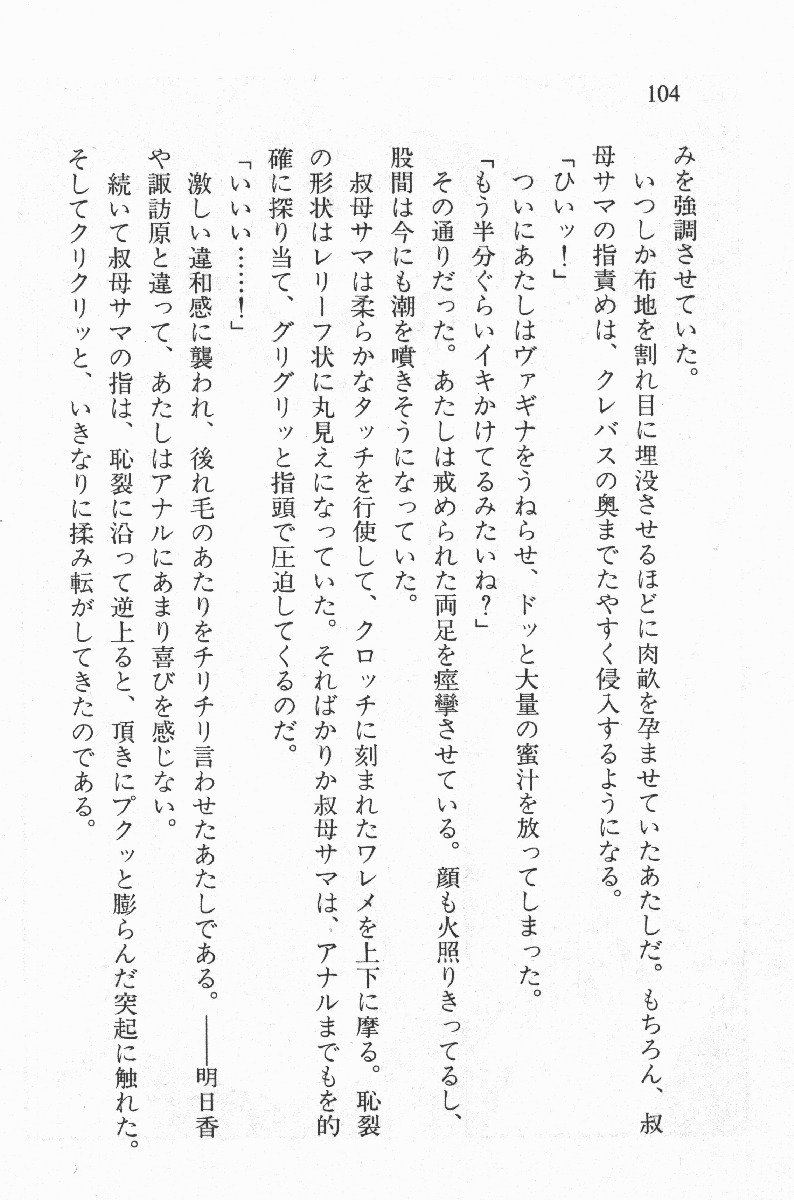 104
みを強調させていた。
いつしか布地を割れ目に埋没させるほどに肉畝を孕ませていたあたしだ。もちろん、叔
母サマの指責めは、クレバスの奥までたやすく侵入するようになる。
「ひいッ！」
ついにあたしはヴァギナをうねらせ、ドッと大量の蜜汁を放ってしまった。
「もう半分ぐらいイキかけてるみたいね？」
その通りだった。あたしは戒められた両足を痙攣させている。顔も火照りきってるし、
股間は今にも潮を噴きそうになっていた。
叔母サマは柔らかなタッチを行使して、クロッチに刻まれたワレメを上下に摩る。恥裂
の形状はレリーフ状に丸見えになっていた。そればかりか叔母サマは、アナルまでもを的
確に探り当て、グリグリッと指頭で圧迫してくるのだ。
「いいい……！」
激しい違和感に襲われ、後れ毛のあたりをチリチリ言わせたあたしである。――明日香
や諏訪原と違って、あたしはアナルにあまり喜びを感じない。
続いて叔母サマの指は、恥裂に沿って逆上ると、頂きにプクッと膨らんだ突起に触れた。
そしてクリクリッと、いきなりに揉み転がしてきたのである。